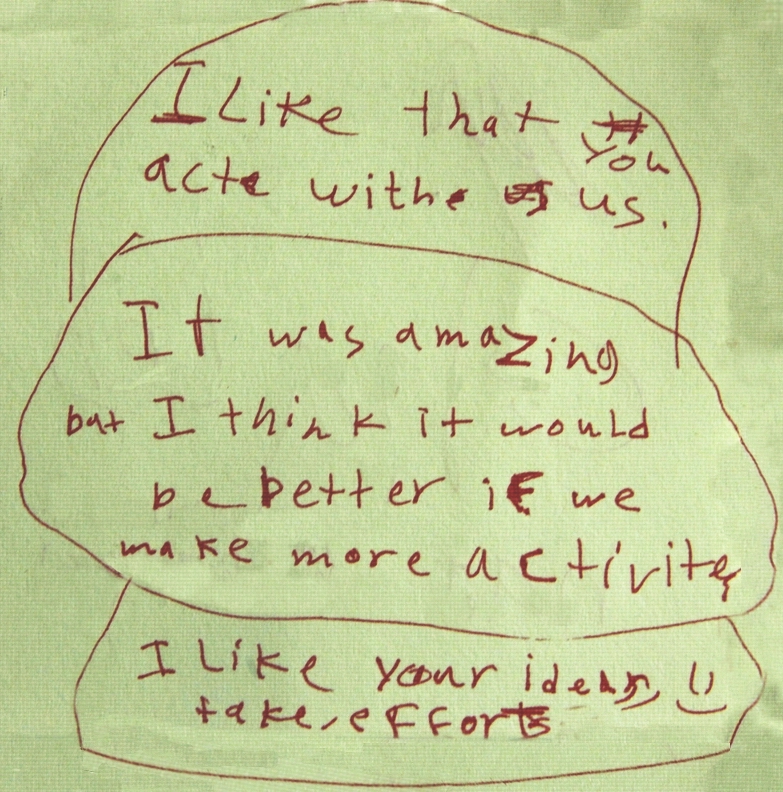 I Like that you
acte withe us.
It was amazing
but I think it would
be better if we
make more activites
I Like your ideas
take efforts